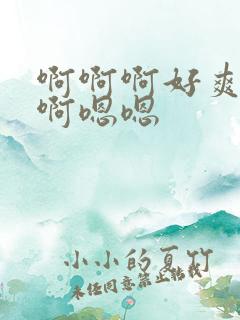 啊啊啊好爽
啊嗯嗯
小小的夏竹
未经同意禁止转载